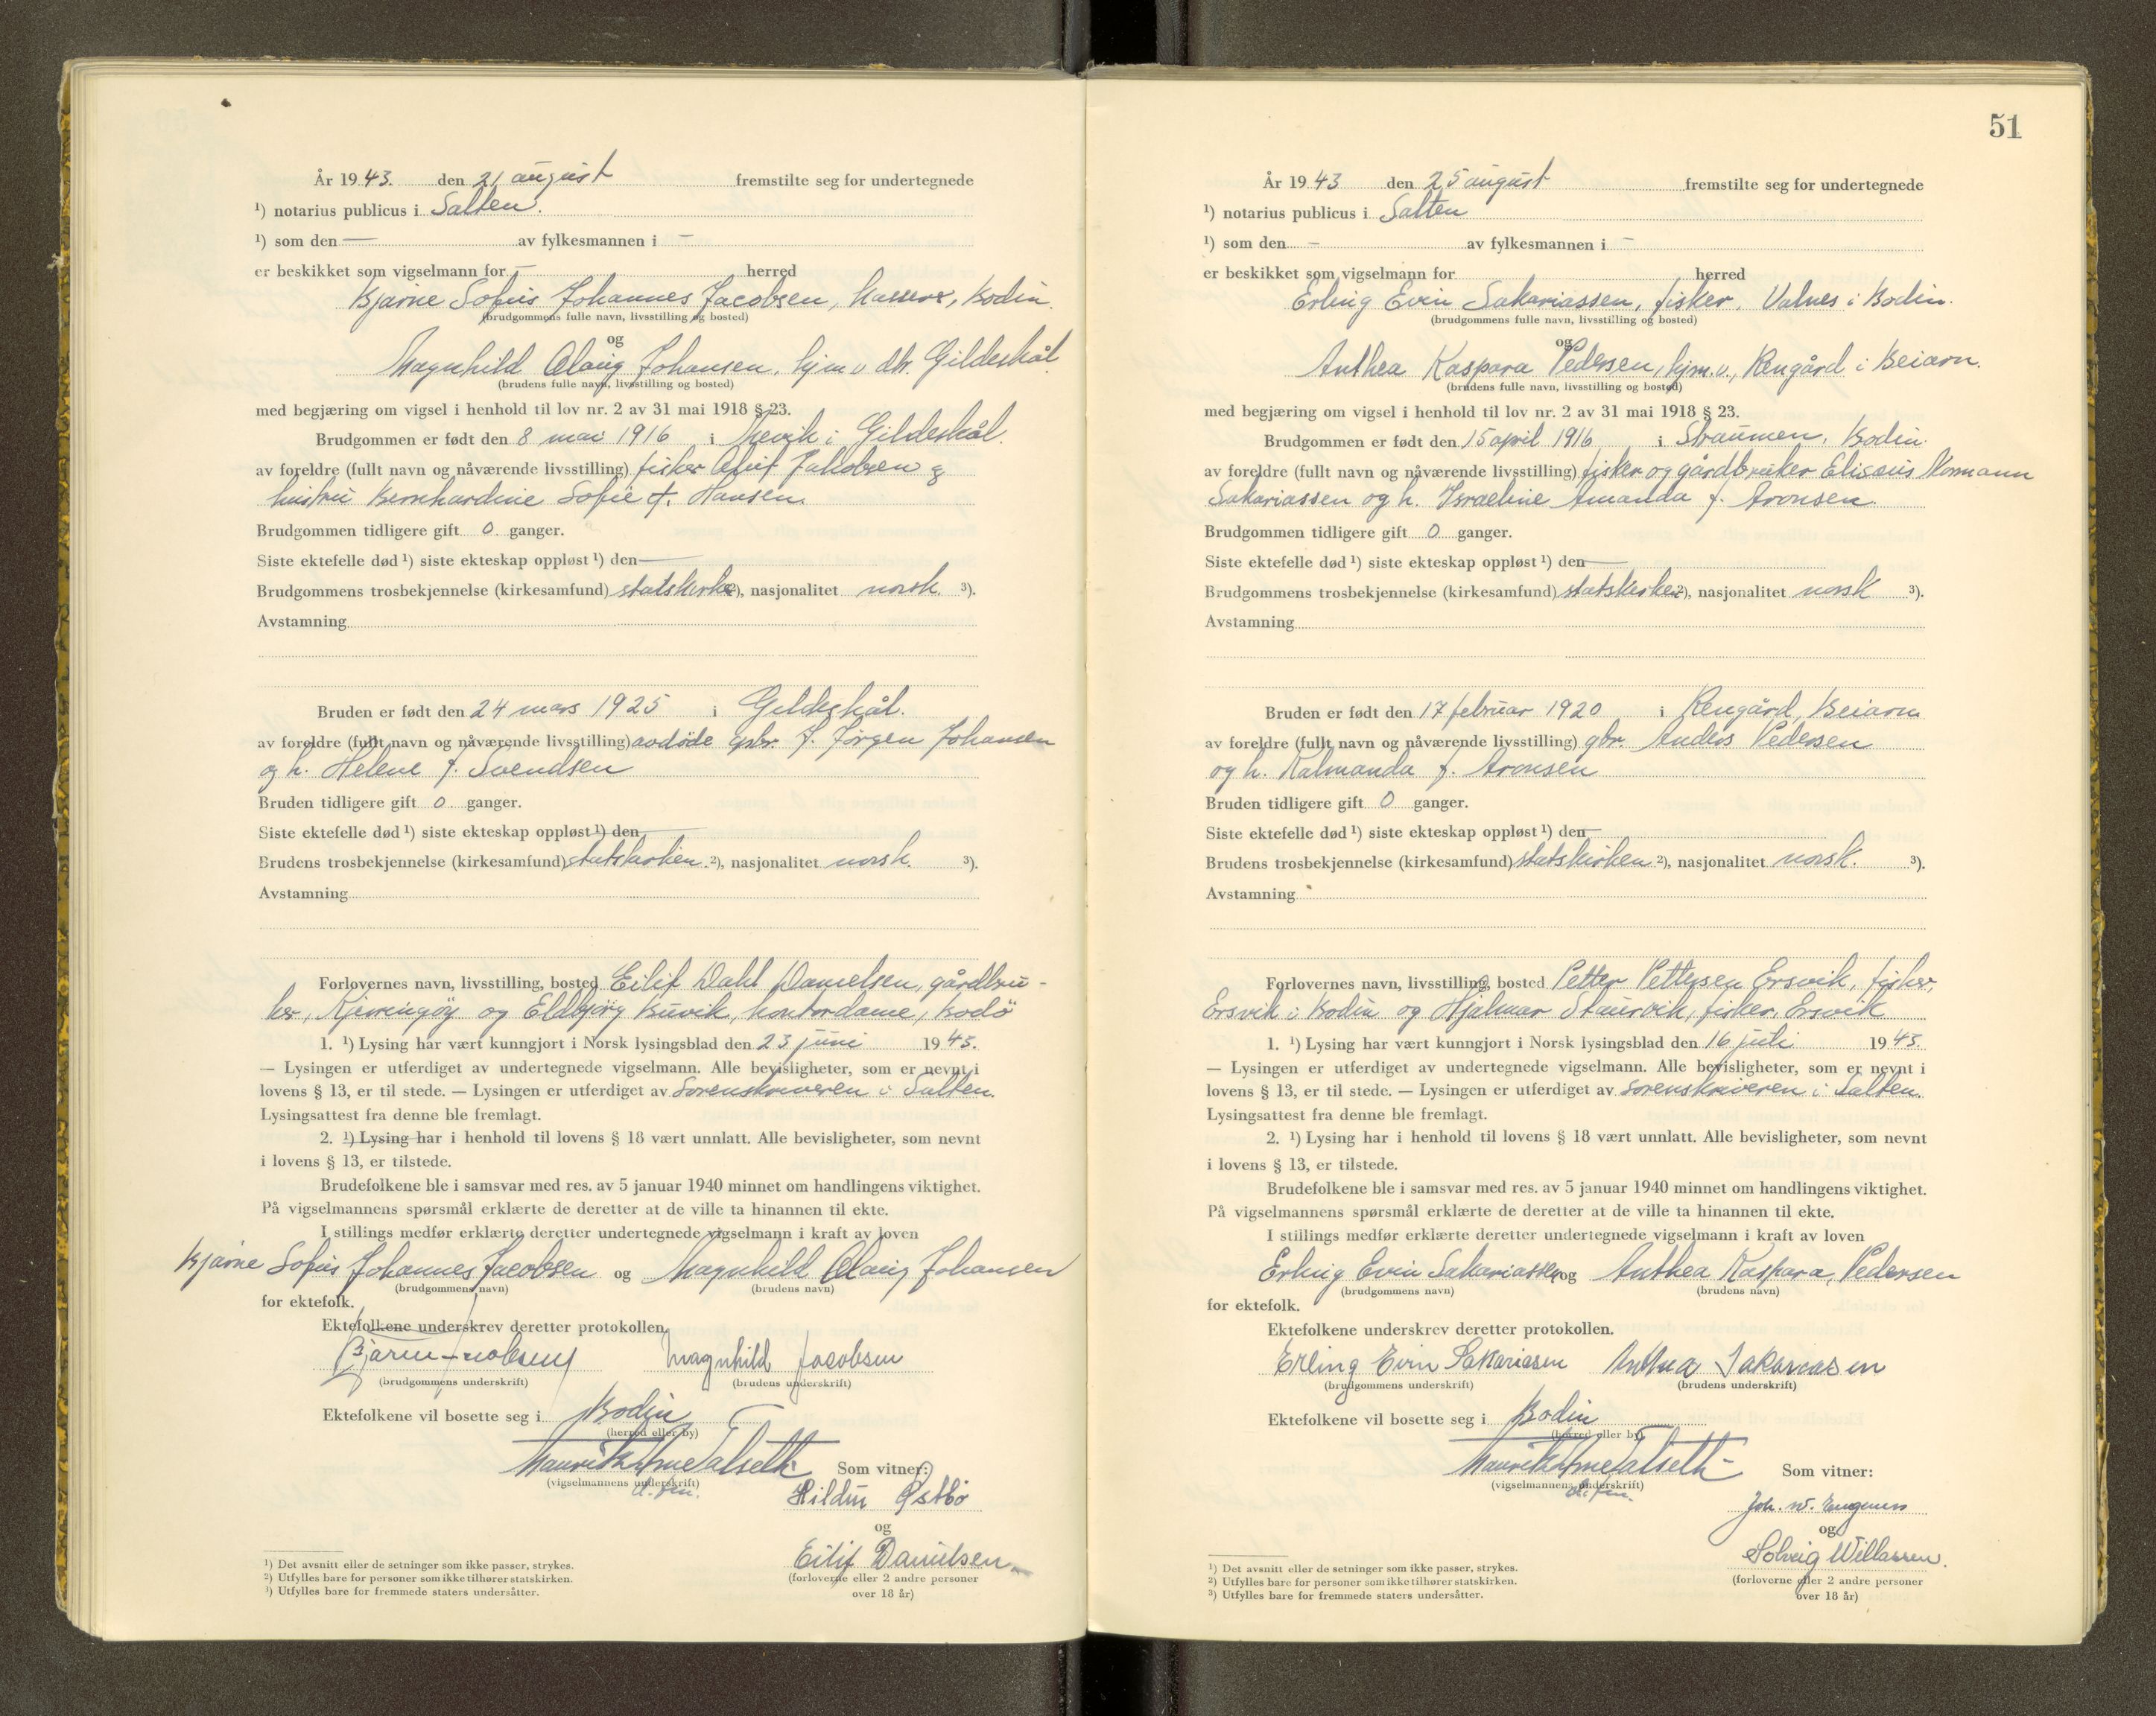 År 19 43. den 21 august fremstilte seg for undertegnede
¹) notarius publicus i Salten.
¹) som den — av fylkesmannen i –
er beskikket som vigselmann for – herred
Bjarne Sofus Johannes Jacobsen, Bodin.
(brudgommens fulle navn, livsstilling og bosted)
og
Magnhild Olaug Johansen, hjm v. dtr. Gildeskål
(brudens fulle navn, livsstilling og bosted)
med begjæring om vigsel i henhold til lov nr. 2 av 31 mai 1918 § 23.
Brudgommen er født den 8 mai 1916 i Mevik i Gildeskål.
av foreldre (fullt navn og nåværende livsstilling) fisker Jakobsen og
hustru Bernhardine Sofie f. Hansen.
Brudgommen tidligere gift 0 ganger.
Siste ektefelle død ¹) siste ekteskap oppløst ¹) den —
Brudgommens trosbekjennelse (kirkesamfund) statskirke ²), nasjonalitet norsk. ³).
Avstamning
Bruden er født den 24 mars 1925 i Gildeskål.
av foreldre (fullt navn og nåværende livsstilling) avdöde gbr. J. Jørgen Johansen
og h. Helene f. Svendsen
Bruden tidligere gift 0 ganger.
Siste ektefelle død ¹) siste ekteskap oppløst ¹) den
Brudens trosbekjennelse (kirkesamfund) statskirken ²), nasjonalitet norsk. ³).
Avstamning
Forlovernes navn, livsstilling, bosted Eilif Dahl Danielsen, gårdbru-
ker, Kjerringøy og Eldbjørg Buvik, kontordame, Bodö
1. ¹) Lysing har vært kunngjort i Norsk lysingsblad den 23 juni 19 43.
— Lysingen er utferdiget av undertegnede vigselmann. Alle bevisligheter, som er nevnt i
lovens § 13, er til stede. — Lysingen er utferdiget av Sorenskriveren i Salten.
Lysingsattest fra denne ble fremlagt.
2. ¹) Lysing har i henhold til lovens § 18 vært unnlatt. Alle bevisligheter, som nevnt
i lovens § 13, er tilstede.
Brudefolkene ble i samsvar med res. av 5 januar 1940 minnet om handlingens viktighet.
På vigselmannens spørsmål erklærte de deretter at de ville ta hinannen til ekte.
I stillings medfør erklærte deretter undertegnede vigselmann i kraft av loven
Bjarne Sofus Johannes Jacobsen og Magnhild Olaug Johansen
(brudgommens navn) (brudens navn)
for ektefolk.
Ektefolkene underskrev deretter protokollen.
Magnhild Jacobsen
(brudgommens underskrift) (brudens underskrift)
Ektefolkene vil bosette seg i Bodin
(herred eller by)
Som vitner:
(vigselmannens underskrift)
Hildur Østbø
og
Eilif Danielsen
(forloverne eller 2 andre personer
over 18 år)
¹) Det avsnitt eller de setninger som ikke passer, strykes.
²) Utfylles bare for personer som ikke tilhører statskirken.
³) Utfylles bare for fremmede staters undersåtter.
51
År 19 43 den 25 august fremstilte seg for undertegnede
¹) notarius publicus i Salten
¹) som den – av fylkesmannen i –
er beskikket som vigselmann for herred
Erling Evin Sakariassen, fisker, Valnes i Bodin.
(brudgommens fulle navn, livsstilling og bosted)
og
Anthea Kaspara Pedersen, hjm.v., Rengård i Beiarn.
(brudens fulle navn, livsstilling og bosted)
med begjæring om vigsel i henhold til lov nr. 2 av 31 mai 1918 § 23.
Brudgommen er født den 15 april 1916 i Straumen, Bodin.
av foreldre (fullt navn og nåværende livsstilling) fisker og gårdbruker Eliseus Normann
Sakariassen og h. Israeline Amanda f. Aronsen.
Brudgommen tidligere gift 0 ganger.
Siste ektefelle død ¹) siste ekteskap oppløst ¹) den —
Brudgommens trosbekjennelse (kirkesamfund) statskirken ²), nasjonalitet norsk ³).
Avstamning
Bruden er født den 17 februar 1920 i Rengård, Beiarn
av foreldre (fullt navn og nåværende livsstilling) gbr. Anders Pedersen
og h. Kalmanda f. Aronsen
Bruden tidligere gift 0 ganger.
Siste ektefelle død ¹) siste ekteskap oppløst ¹) den —
Brudens trosbekjennelse (kirkesamfund) statskirken ²), nasjonalitet norsk. ³).
Avstamning
Forlovernes navn, livsstilling, bosted Petter Pettersen Ersvik, fisker,
Ersvik i Bodin og Hjalmar Staurvik, fisker, Ersvik
1. ¹) Lysing har vært kunngjort i Norsk lysingsblad den 16 juli 19 43.
— Lysingen er utferdiget av undertegnede vigselmann. Alle bevisligheter, som er nevnt i
lovens § 13, er til stede. — Lysingen er utferdiget av sorenskriveren i Salten.
Lysingsattest fra denne ble fremlagt.
2. ¹) Lysing har i henhold til lovens § 18 vært unnlatt. Alle bevisligheter, som nevnt
i lovens § 13, er tilstede.
Brudefolkene ble i samsvar med res. av 5 januar 1940 minnet om handlingens viktighet.
På vigselmannens spørsmål erklærte de deretter at de ville ta hinannen til ekte.
I stillings medfør erklærte deretter undertegnede vigselmann i kraft av loven
Erling Evin Sakariassen og Anthea Kaspara Pedersen
(brudgommens navn) (brudens navn)
for ektefolk.
Ektefolkene underskrev deretter protokollen.
Erling Evin Sakariasen Anthea Sakariasen
(brudgommens underskrift) (brudens underskrift)
Ektefolkene vil bosette seg i Bodin
(herred eller by)
Som vitner:
(vigselmannens underskrift)
Joh. W.
og
Solveig Willassen.
(forloverne eller 2 andre personer
over 18 år)
¹) Det avsnitt eller de setninger som ikke passer, strykes.
²) Utfylles bare for personer som ikke tilhører statskirken.
³) Utfylles bare for fremmede staters undersåtter.